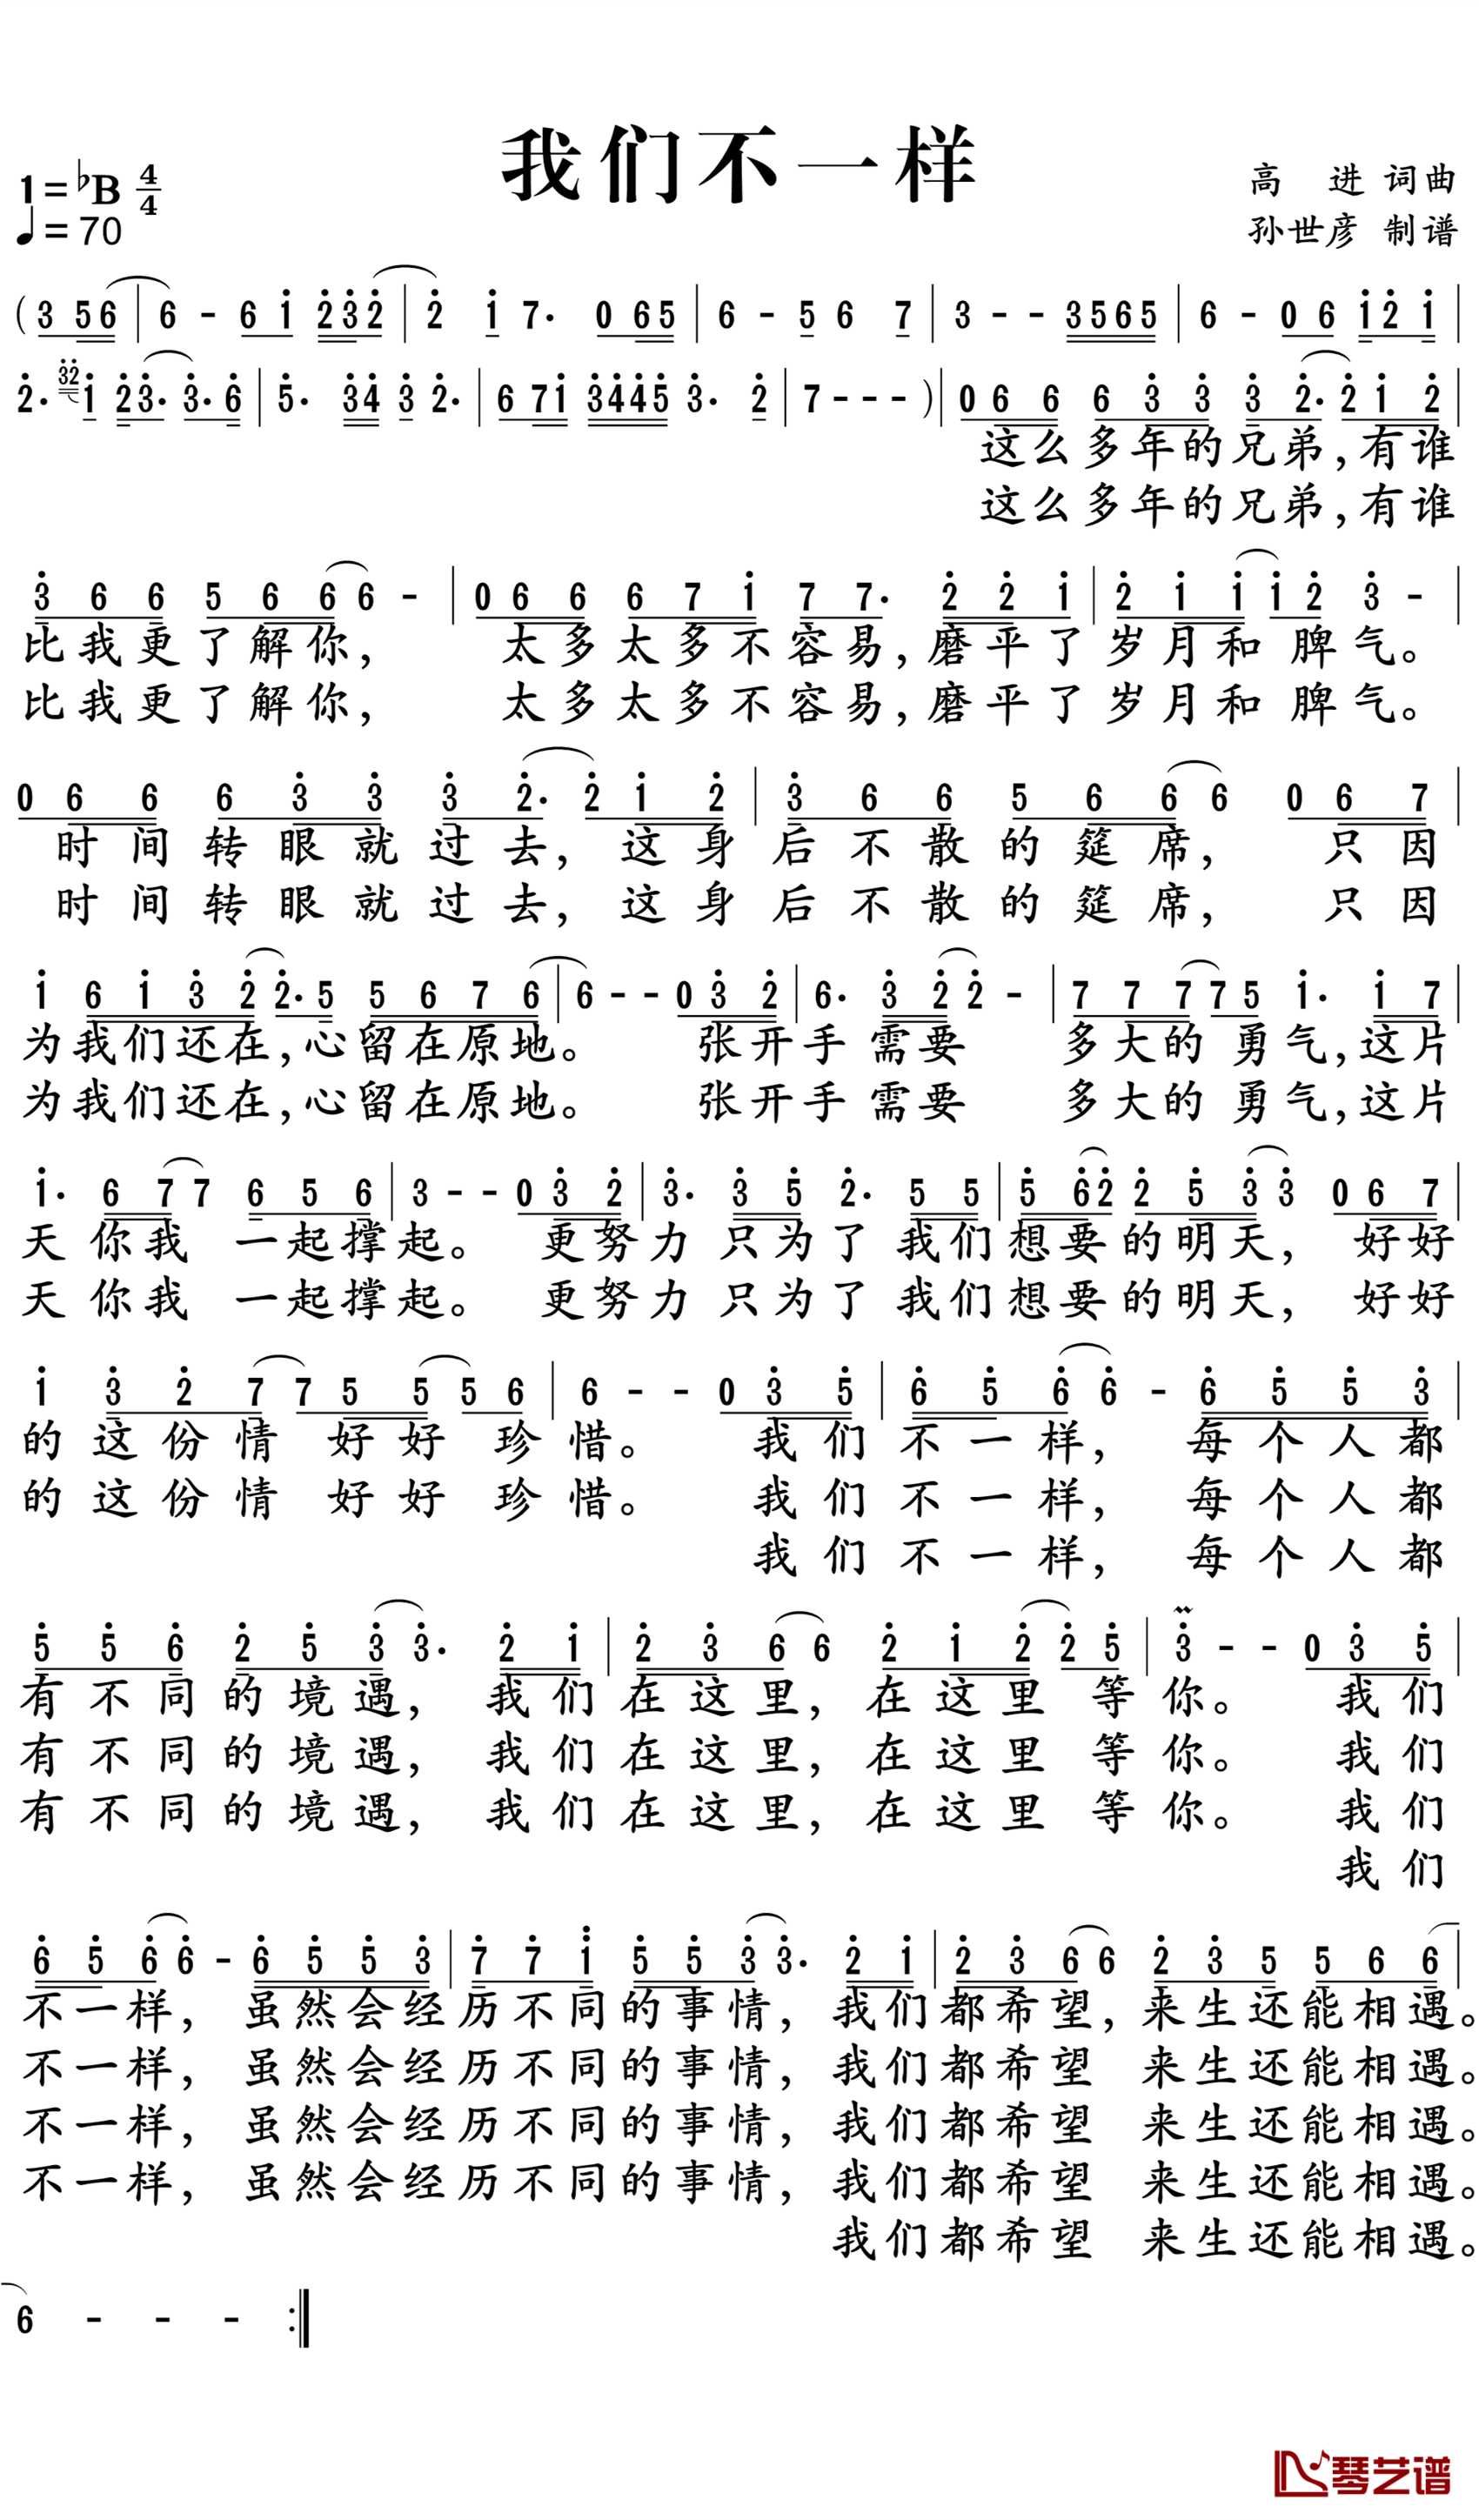 我们不一样
1=♭B 4/4
♩=70
高 进 词曲
孙世彦 制谱
(3 56 | 6 - 6 1̇ 2̇3̇2̇ | 2̇ 1̇ 7. 0 65 | 6 - 5 6 7 | 3 - - 3565 | 6 - 0 6 1̇2̇ 1̇ |
2̇. 3̇2̇ 1̇ 2̇3̇. 3̇. 6̇ | 5̇. 3̇4̇ 3̇ 2̇. | 6 71̇ 3̇4̇4̇5̇ 3̇. 2̇ | 7 - - - ) | 0 6 6 6 3̇ 3̇ 3̇ 2̇. 2̇ 1̇ 2̇ |
这么多年的兄弟,有谁
这么多年的兄弟,有谁
3̇ 6 6 5 6 6 6 - | 0 6 6 6 7 1̇ 7 7. 2̇ 2̇ 1̇ | 2̇ 1̇ 1̇ 1̇ 2̇ 3̇ - |
比我更了解你, 太多太多不容易,磨平了岁月和脾气。
比我更了解你, 太多太多不容易,磨平了岁月和脾气。
0 6 6 6 3̇ 3̇ 3̇ 2̇. 2̇ 1̇ 2̇ | 3̇ 6 6 5 6 6 6 0 6 7 |
时间转眼就过去,这身后不散的筵席, 只因
时间转眼就过去,这身后不散的筵席, 只因
1̇ 6 1̇ 3̇ 2̇ 2̇. 5 5 6 7 6 | 6 - - 0 3̇ 2̇ | 6. 3̇ 2̇ 2̇ - | 7 7 7 7 5 1̇. 1̇ 7 |
为我们还在,心留在原地。 张开手需要 多大的勇气,这片
为我们还在,心留在原地。 张开手需要 多大的勇气,这片
1̇. 6 7 7 6 5 6 | 3 - - 0 3̇ 2̇ | 3̇. 3̇ 5̇ 2̇. 5 5 | 5̇ 6̇2̇ 2̇ 5̇ 3̇ 3̇ 0 6 7 |
天你我 一起撑起。 更努力只为了我们想要的明天, 好好
天你我 一起撑起。 更努力只为了我们想要的明天, 好好
1̇ 3̇ 2̇ 7 7 5 5 5 6 | 6 - - 0 3̇ 5̇ | 6̇ 5̇ 6̇ 6̇ - 6̇ 5̇ 5̇ 3̇ |
的这份情 好好 珍惜。 我们不一样, 每个人都
的这份情 好好 珍惜。 我们不一样, 每个人都
我们不一样, 每个人都
5̇ 5̇ 6̇ 2̇ 5̇ 3̇ 3̇. 2̇ 1̇ | 2̇ 3̇ 6 6 2̇ 1̇ 2̇ 2̇ 5̇ | 3̇ - - 0 3̇ 5̇ |
有不同的境遇, 我们在这里,在这里 等你。 我们
有不同的境遇, 我们在这里,在这里 等你。 我们
有不同的境遇, 我们在这里,在这里 等你。 我们
我们
6̇ 5̇ 6̇ 6̇ - 6̇ 5̇ 5̇ 3̇ | 7̇ 7̇ 1̈ 5̇ 5̇ 3̇ 3̇. 2̇ 1̇ | 2̇ 3̇ 6 6 2̇ 3̇ 5 5 6 6 |
不一样, 虽然会经历不同的事情, 我们都希望,来生还能相遇。
不一样, 虽然会经历不同的事情, 我们都希望 来生还能相遇。
不一样, 虽然会经历不同的事情, 我们都希望 来生还能相遇。
不一样, 虽然会经历不同的事情, 我们都希望 来生还能相遇。
我们都希望 来生还能相遇。
6 - - - :||
琴艺谱